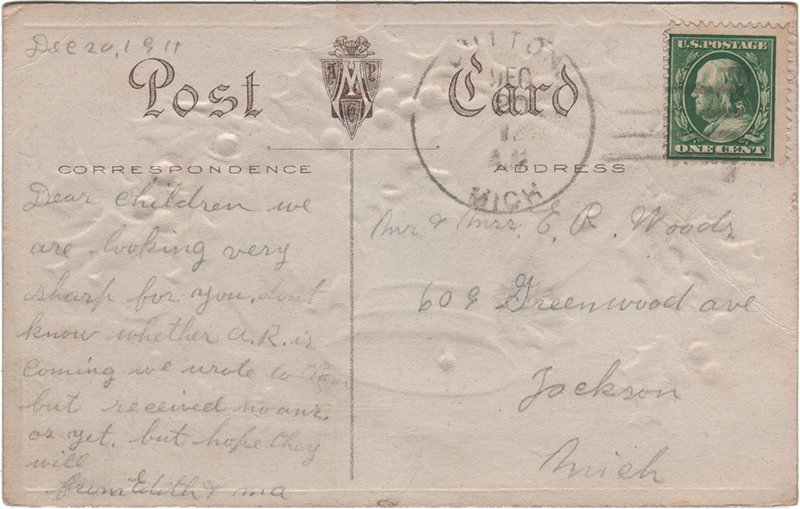 Dec 20, 1911
Post Card
A M P C
CORRESPONDENCE
ADDRESS
DEC
A.M.
MICH
U.S. POSTAGE
ONE CENT
Dear children we
are looking very
sharp for you, dont
know whether A.R. is
coming we wrote to them
but received no ans.
as yet, but hope they
will
from Edith & ma
Mr & Mrs. E. R. Woods
609 Greenwood ave
Jackson
Mich